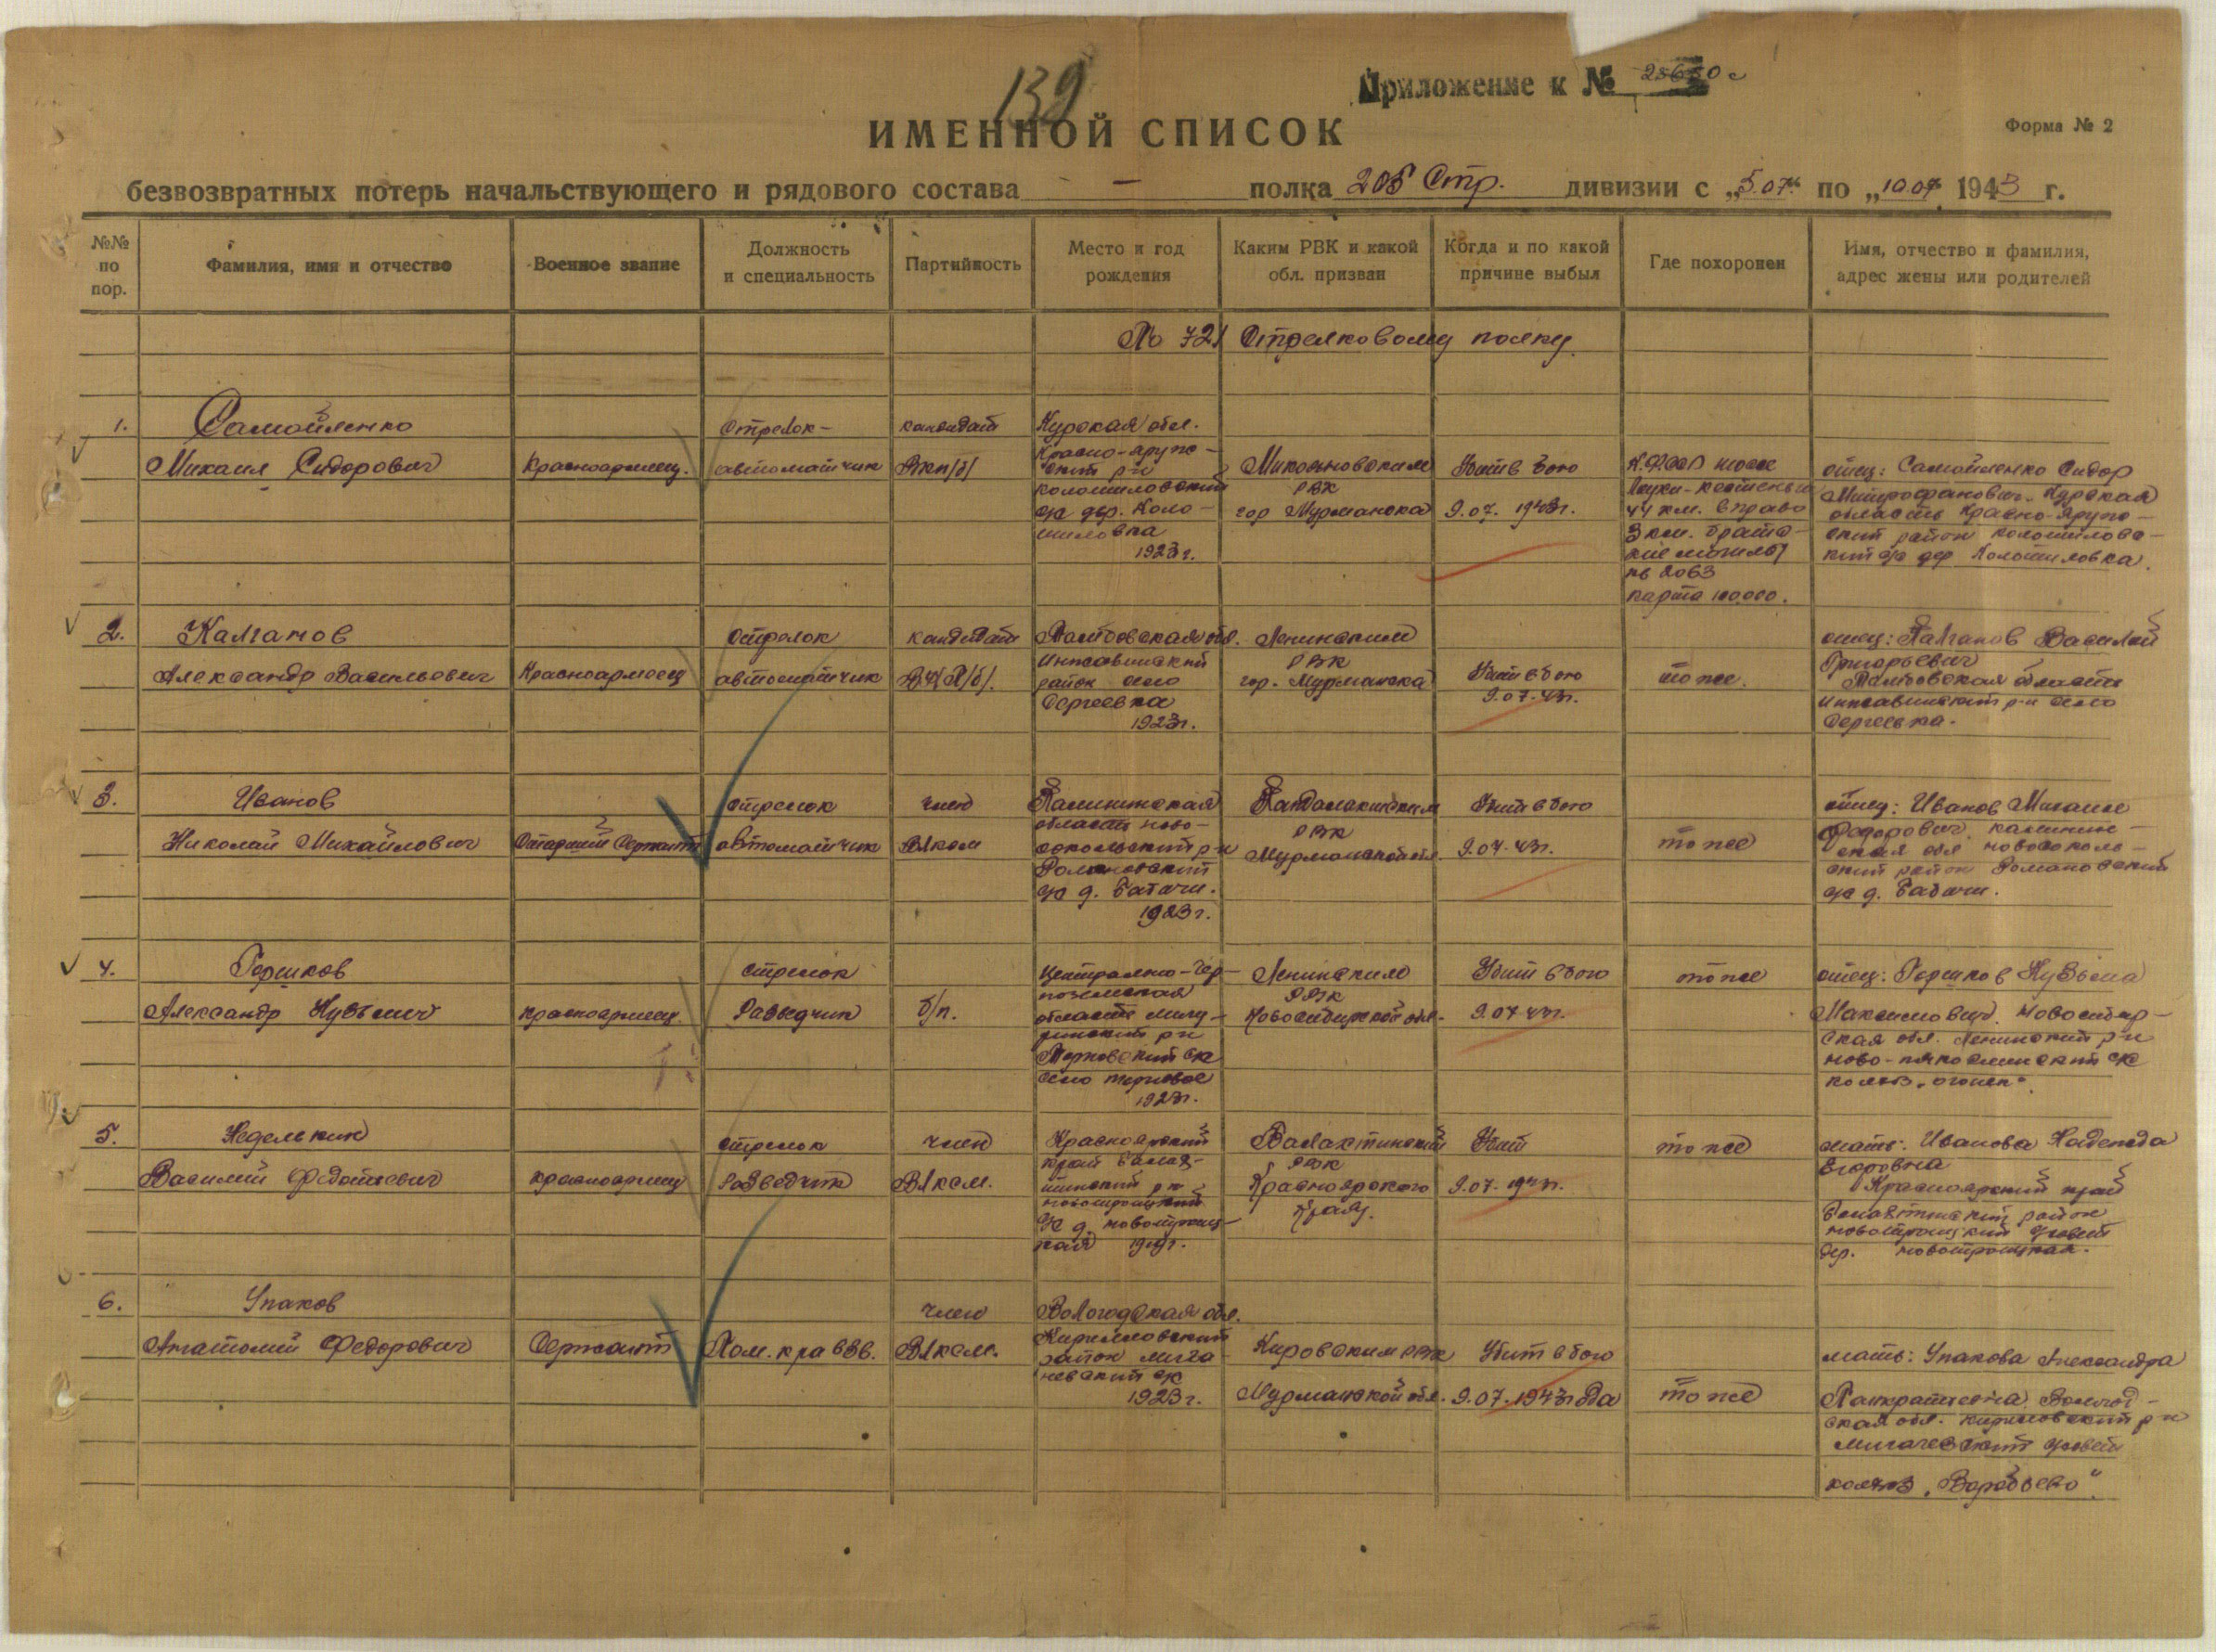 139
Приложение к № 25650с
ИМЕННОЙ СПИСОК
Форма № 2
безвозвратных потерь начальствующего и рядового состава — полка 205 Стр. дивизии с „5.07“ по „10.07 1943 г.
№№ по пор.
Фамилия, имя и отчество
Военное звание
Должность и специальность
Партийность
Место и год рождения
Каким РВК и какой обл. призван
Когда и по какой причине выбыл
Где похоронен
Имя, отчество и фамилия, адрес жены или родителей
По 721 Стрелковому полку.
1.
Самойленко
Михаил Сидорович
Красноармеец.
Стрелок-
автоматчик
кандидат
ВКП/б/
Курская обл.
Красно-яруж-
ский р-н
Колошиловский
с/с дер. Коло-
шиловка
1923 г.
Микояновским
РВК
гор Мурманска
Убит в бою
9.07. 1943г.
К.ФССР шоссе
Лоухи-Кестеньга
44 км. вправо
3 км. братс-
кие могилы
кв 2063
карта 100.000.
отец: Самойленко Сидор
Митрофанович. Курская
область Красно-Яруж-
ский район Колошиловс-
кий с/с дер Колошиловка.
2.
Калганов
Александр Васильевич
Красноармеец
Стрелок
автоматчик
кандидат
ВКП/б/.
Тамбовская обл.
Инжавинский
район село
Сергеевка
1923г.
Ленинским
РВК
гор. Мурманска
Убит в бою
9.07.43г.
то же.
отец: Калганов Василий
Григорьевич
Тамбовская область
Инжавинский р-н село
Сергеевка.
3.
Иванов
Николай Михайлович
Старший Сержант
стрелок
автоматчик
член
ВЛКСМ
Калининская
область Ново-
сокольский р-н
Романовский
с/с д. Бабачи.
1923г.
Кандалакшским
РВК
Мурманской обл.
Убит в бою
9.07.43г.
то же
отец: Иванов Михаил
Федорович. Калинин-
ская обл Новосоколь-
ский район Романовский
с/с д. Бабачи.
4.
Горшков
Александр Кузьмич
красноармеец
стрелок
Разведчик
б/п.
Центрально-Чер-
ноземная
область Мичу-
ринский р-н
Терновский с/с
село Терновое
1923г.
Ленинским
РВК
Новосибирской обл.
Убит в бою
9.07.43г.
то же
отец: Горшков Кузьма
Максимович. Новосибир-
ская обл. Ленинский р-н
с/с
колхоз „Огонек“.
5.
Неделькин
Василий Федотьевич
красноармеец
стрелок
Разведчик
член
ВЛКСМ.
Красноярский
край Балах-
тинский р-н
Новотроицкий
с/с д. Новотроиц-
кая 1919г.
Балахтинский
РВК
Красноярского
Края.
Убит
9.07.1943г.
то же
мать: Иванова Надежда
Егоровна
Красноярский край
Балахтинский район
Новотроицкий с/совет
дер. Новотроицкая.
6.
Упаков
Анатолий Федорович
Сержант
Пом. к-ра взв.
член
ВЛКСМ.
Вологодская обл.
Кирилловский
район Мига-
чевский с/с
1923 г.
Кировским РВК
Мурманской обл.
Убит в бою
9.07.1943 года
то же
мать: Упакова Александра
Панкратьевна. Вологод-
ская обл. Кирилловский р-н
Мигачевский с/совет
колхоз „Воробьево“.